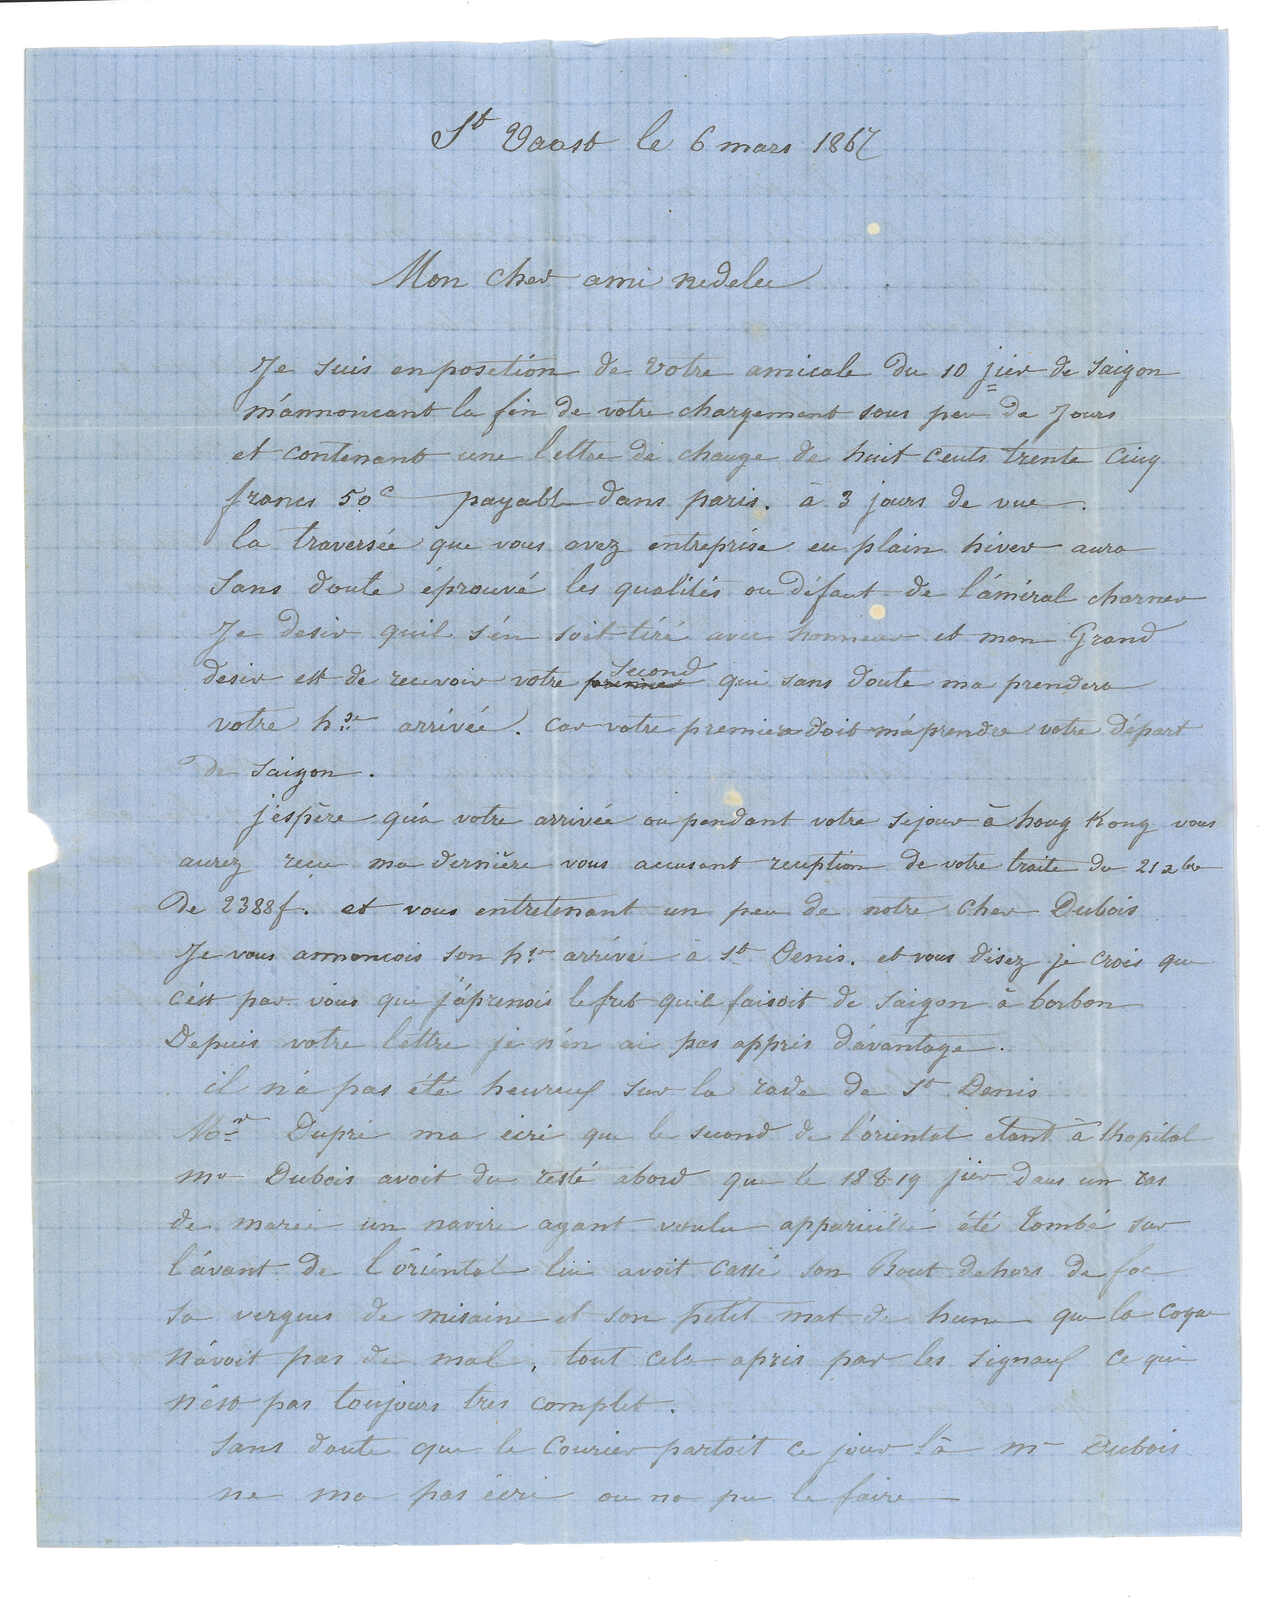 St Vaast le 6 mars 1867
Mon cher ami nedelec
Je suis en posetion de votre amicale du 10 jier de Saigon
m'annoncant la fin de votre chargement sous peu de Jours
et contenant une lettre de change de huit cents trente cinq
francs 50c payable dans paris. à 3 jours de vue.
la traversée que vous avez entreprise en plain hiver aura
Sans doute éprouvé les qualités ou défaut de l'améral charner
Je desir quil s'én soit tiré avec honneur et mon Grand
desir est de recevoir votre premier second qui sans doute ma prendera
votre hse arrivée. car votre premiere doit m'áprendre votre départ
de Saigon.
j'éspère qu'a votre arrivée ou pendant votre sejour à houg Kong vous
aurez recu ma dernière vous accusant reception de votre traite du 21 xbre
De 2388f. et vous entretenant un peu de notre cher Dubois
Je vous annoncois son hse arrivée a St Denis. et vous disez je crois que
c'ést par vous que j'áprenois le fret quil faisoit de Saigon à borbon
Depuis votre lettre je n'én ai pas appris d'avantage.
il n'á pas été heureux sur la rade de St Denis
Mor Dupré ma écri que le second de l'órientol etant à lhopital
mr Dubois avoit du resté abord que le 18 & 19 jier dans un ras
de marée un navire ayant voulu appareillé été tombé sur
l'ávant de l'órientol lui avoit cassé son Bout dehors de foc
sa vergues de misaine et son petit mat de hune que la coque
n'ávoit pas de mal, tout cela apris par les signaux ce qui
n'ést pas toujours tres complet.
Sans doute que le courier partoit ce jour là mr Dubois
ne ma pas écri ou na pu le faire